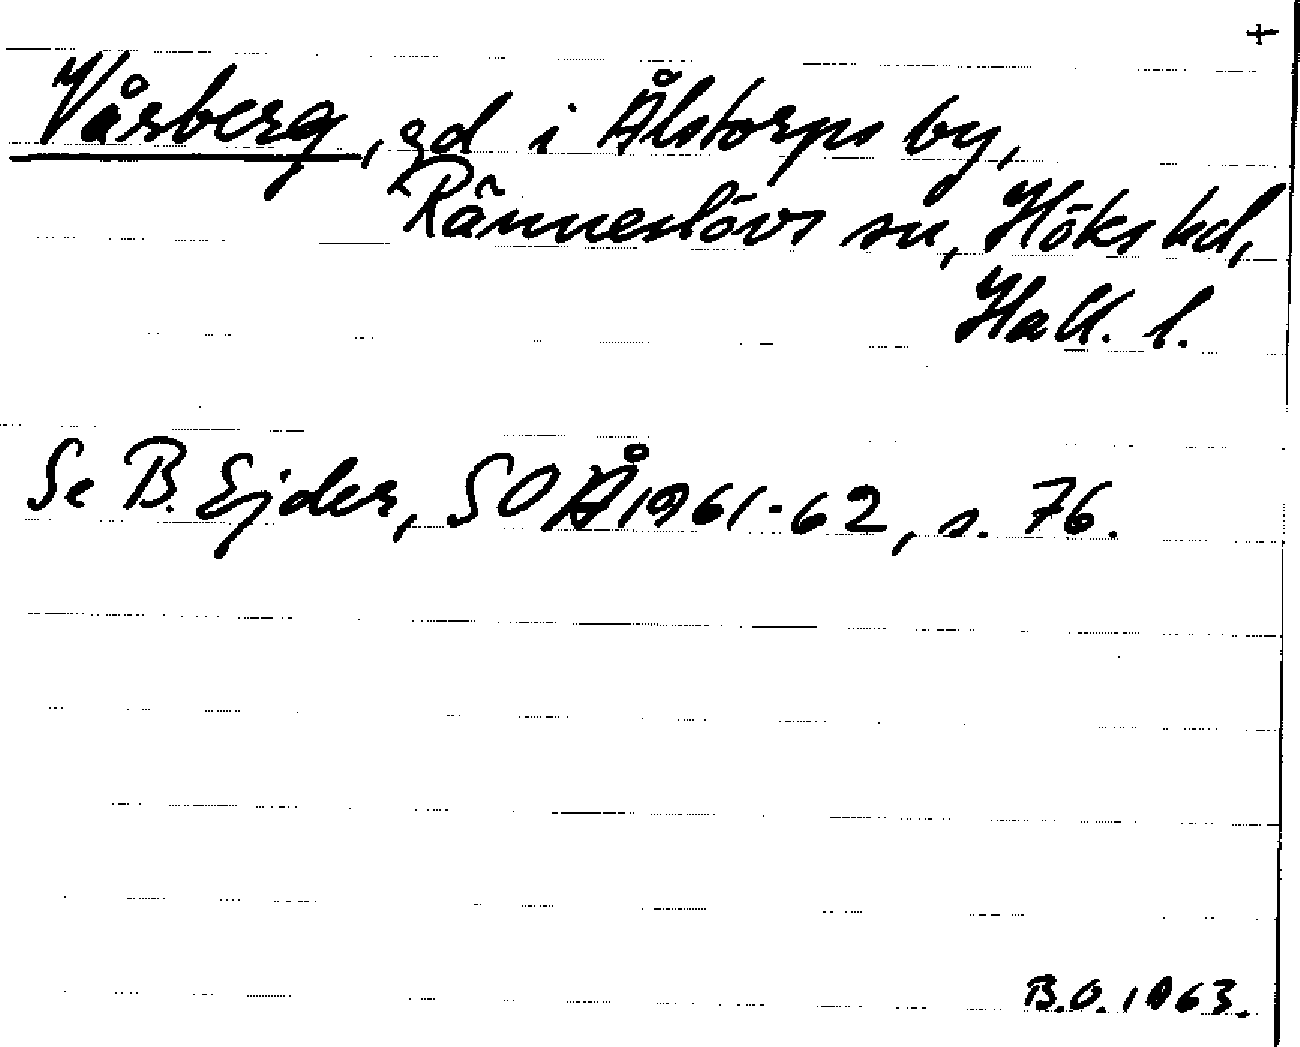 +
Vårberg, gd i Ålstorps by,
Ränneslövs sn, Höks hd,
Hall. l.
Se B. Ejder, SOÅ 1961-62, s. 76.
B.O. 1963.